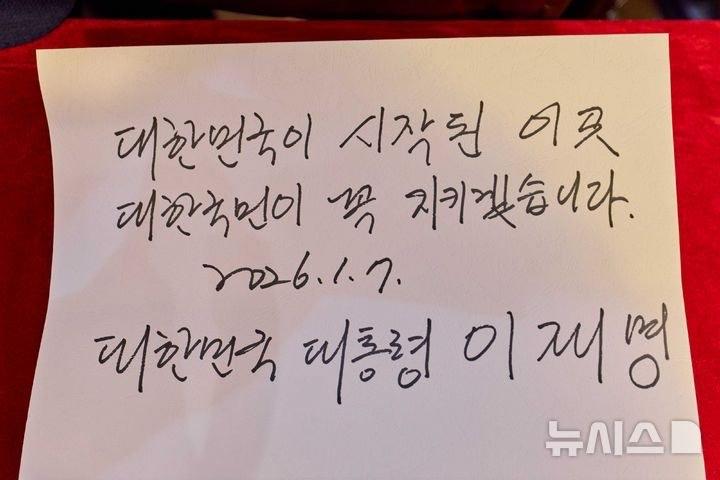 대한민국이 시작된 이곳
대한국민이 꼭 지키겠습니다.
2026.1.7.
대한민국 대통령 이재명
뉴시스